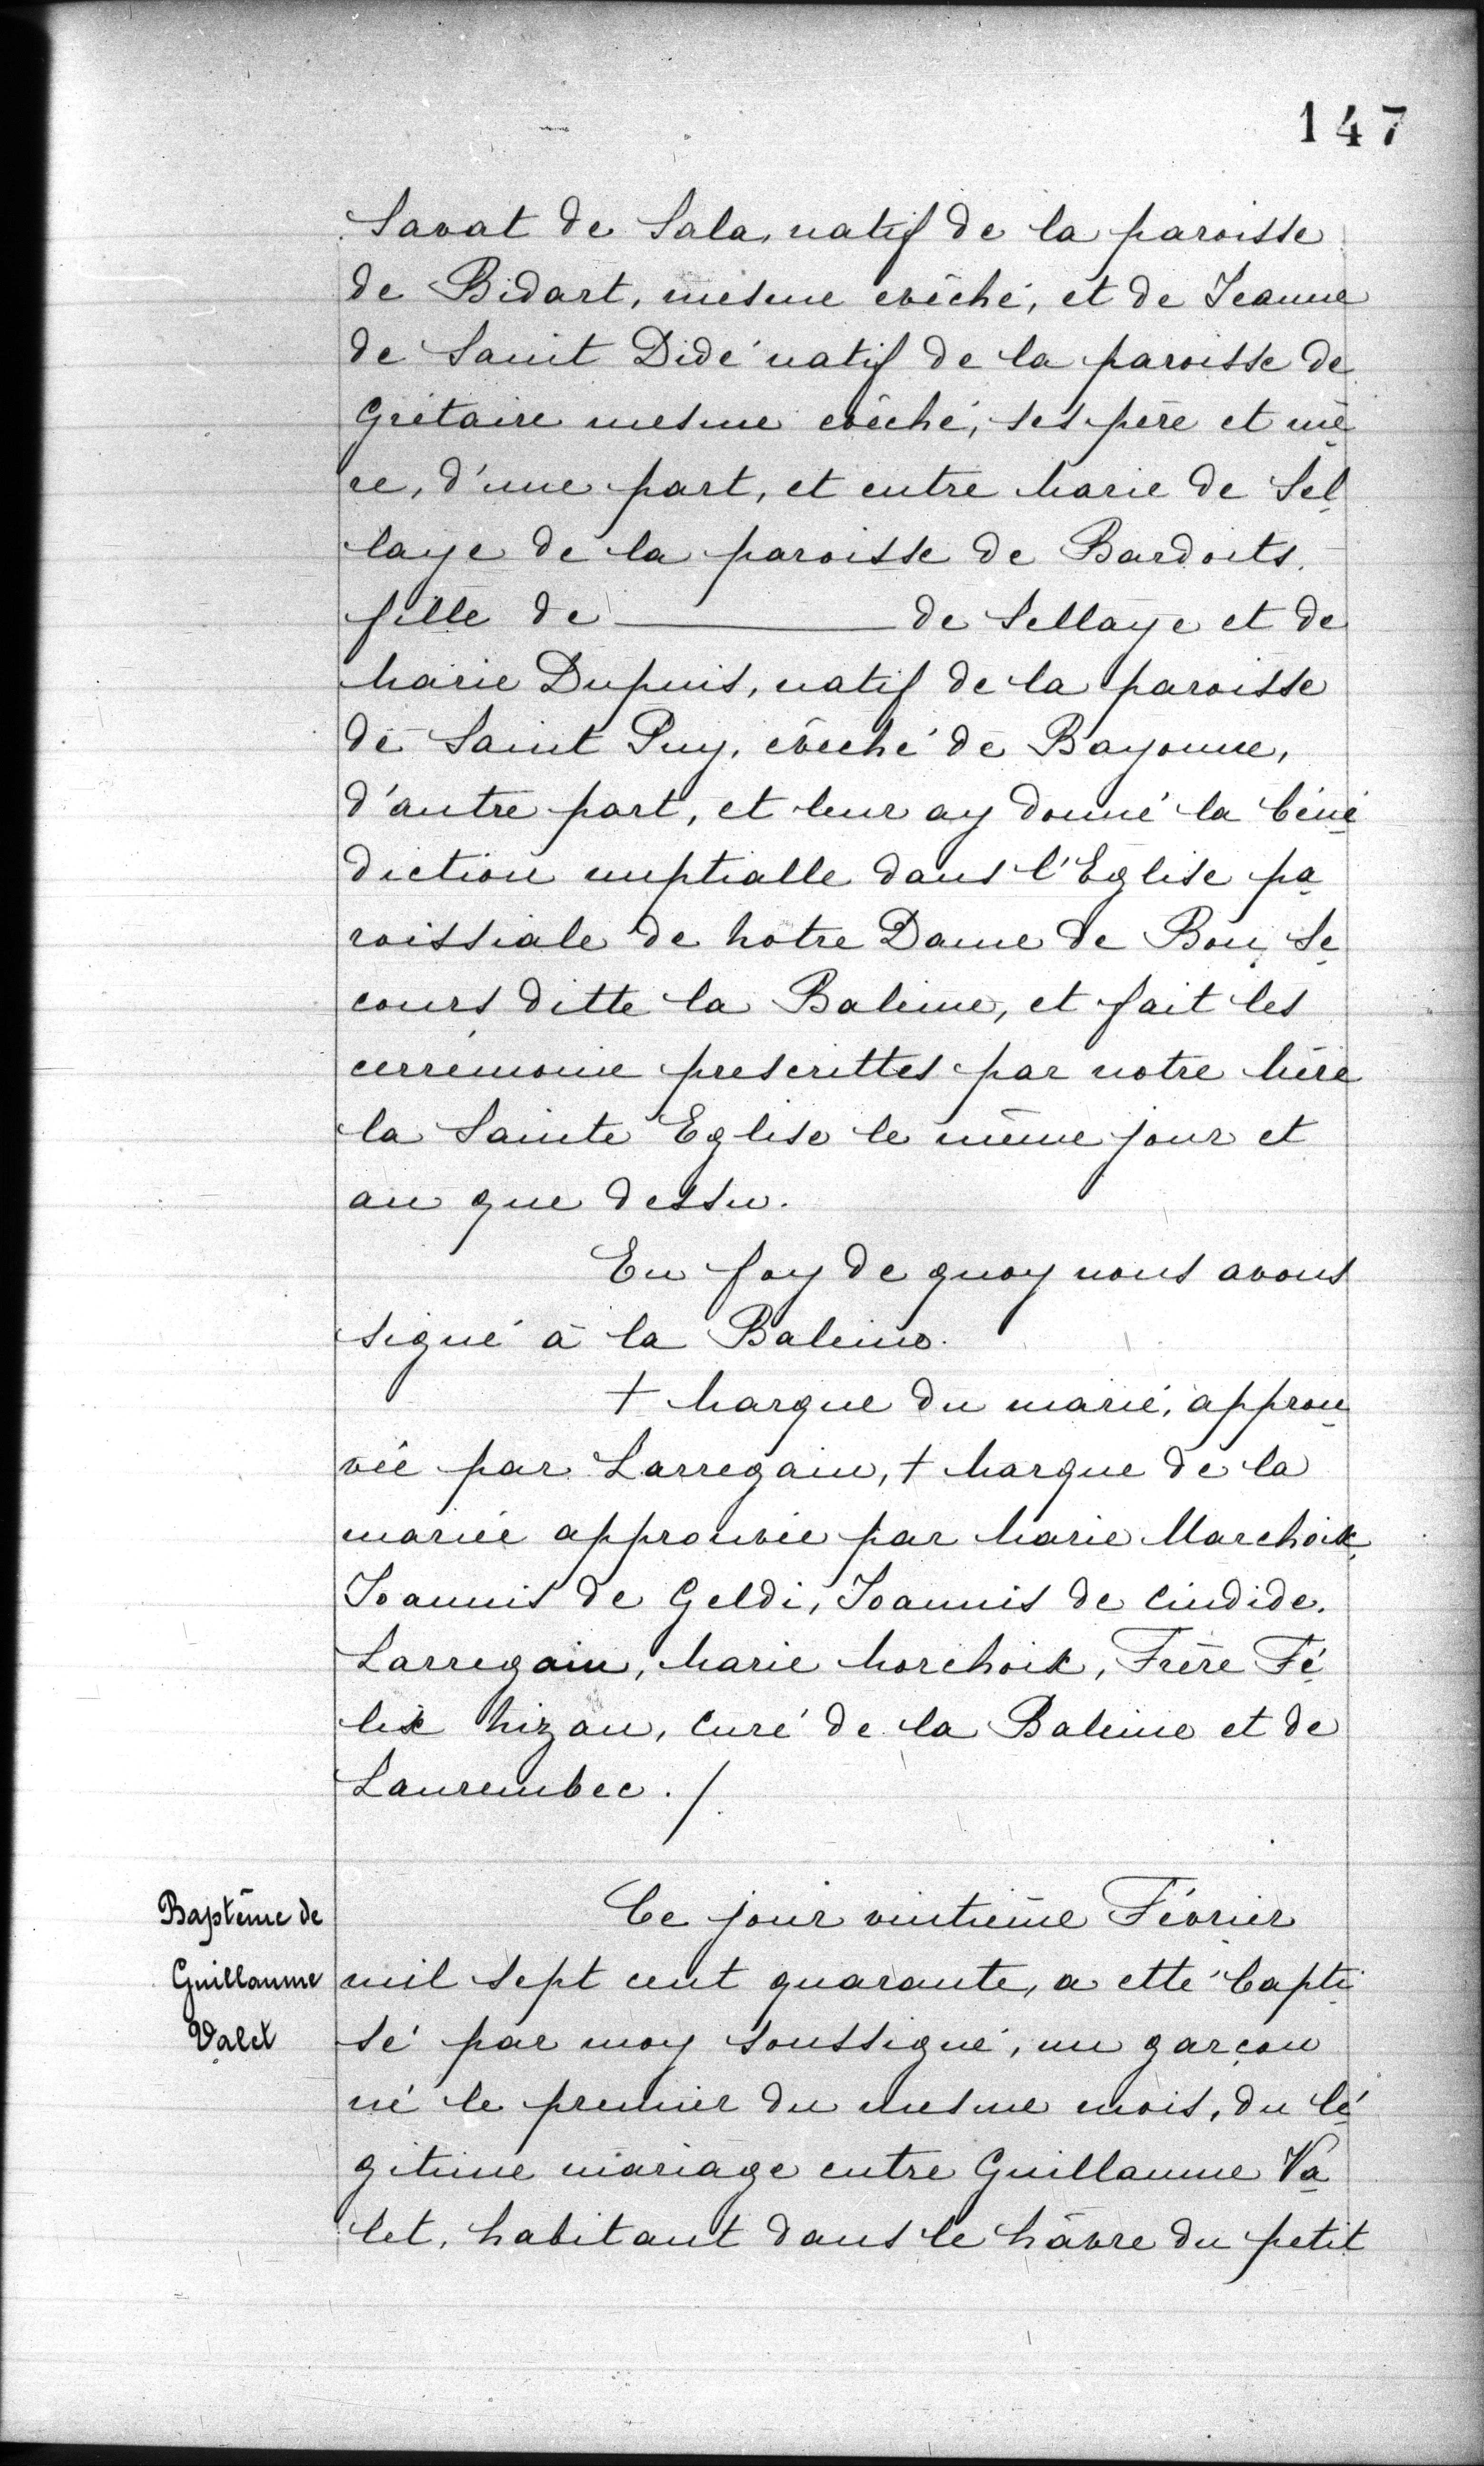 147
Savat de Sala, natif de la paroisse
de Bidart, mesme evêché, et de Jeanne
de Saint Didé natif de la paroisse de
Gretaire mesme evêché, ses père et mè
re, d'une part, et entre Marie de Sel
laye de la paroisse de Bardoits.
fille de ———— de Sellaye et de
Marie Dupuis, natif de la paroisse
de Saint Puy, evêché de Bayonne,
d'autre part, et leur ay donné la béné
diction nuptialle dans l'Eglise pa
roissiale de Notre Dame de Bon Se
cours ditte la Baleine, et fait les
cerrémonie prescrittes par notre Mère
la Sainte Eglise le même jour et
an que dessu.
En foy de quoy nous avons
signé à la Baleine.
+ Marque du marié, approu
vée par Larregain, + Marque de la
mariée approuvée par Marie Marchoix
Joannis de Geldi, Joannis de Cindide.
Larregain, Marie Morchoix, Frère Fé
lix Nizan, Curé de la Baleine et de
Laurembec ./
Baptême de
Guillaume
Valet
Ce jour vintième Février
mil sept cent quarante, a etté bapti
sé par moy soussigné, un garçon
né le premier du mesme mois, du lé
gitime mariage entre Guillaume Va
let, habitant dans le hâvre du petit